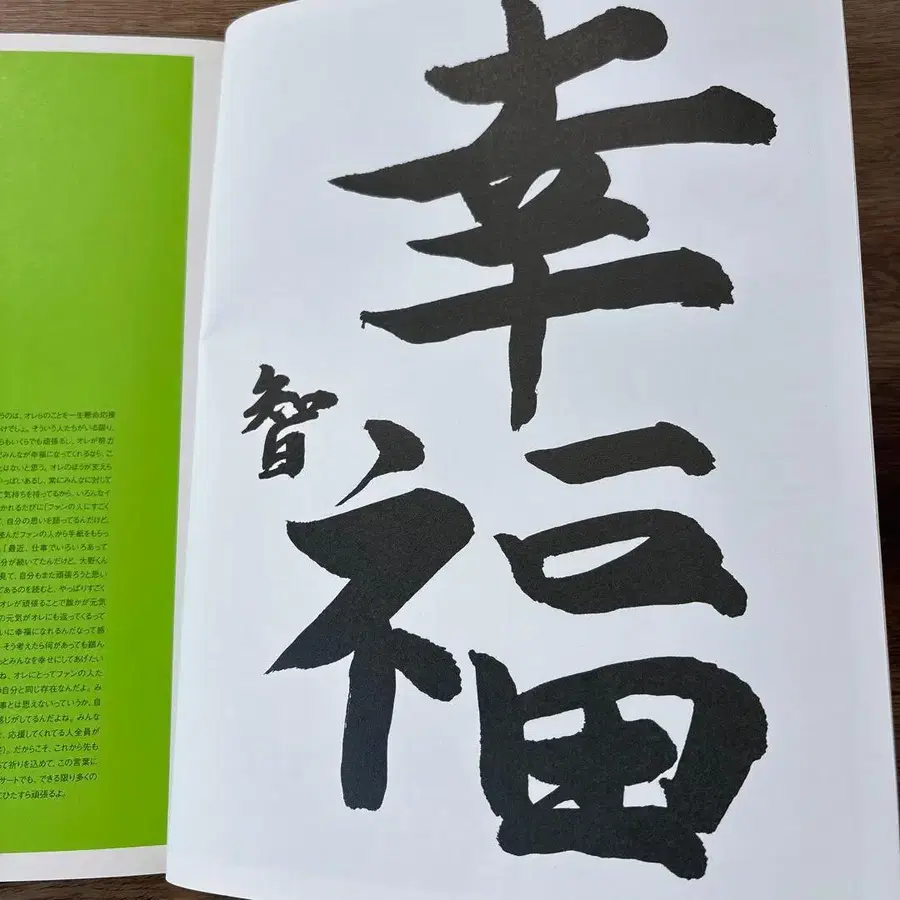 うのは、オレらのことを一生懸命応援
けでしょ。そういう人たちがいる限り、
らもいくらでも頑張るし、オレが頑張
どみんなが幸福になってくれるなら、こ
とはないと思う。オレのほうが支えら
いっぱいあるし、常にみんなに対して
て気持ちを持ってるから、いろんなイ
かれるたびに「ファンの人にすごく
て、自分の思いを語ってるんだけど。
読んだファンの人から手紙をもらっ
「最近、仕事でいろいろあって
分が続いてたんだけど、大野くん
見て、自分もまた頑張ろうと思い
てあるのを読むと、やっぱりすごく
オレが頑張ることで誰かが元気
の元気がオレにも返ってくるって
いに幸福になれるんだなって感
そう考えたら何があっても踏ん
っとみんなを幸せにしてあげたい
ね、オレにとってファンの人た
の自分と同じ存在なんだよ。み
事とは思えないっていうか、自
感じがしてるんだよね。みんな
、応援してくれてる人全員が
)。だからこそ、これから先も
て祈りを込めて、この言葉に
サートでも、できる限り多くの
にひたすら頑張るよ。
幸福
智